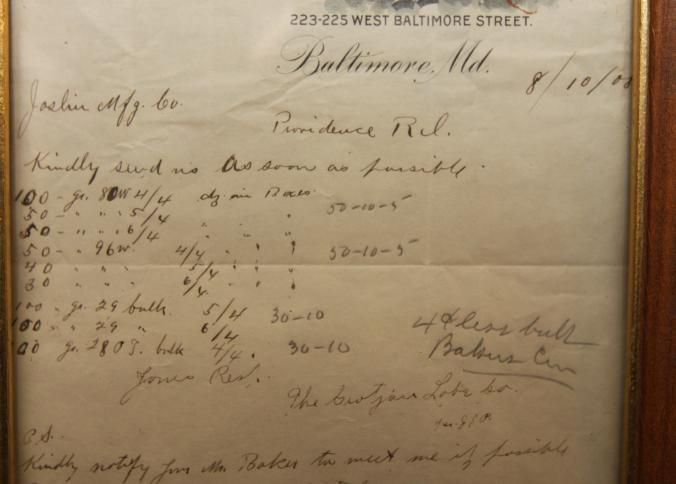 223-225 WEST BALTIMORE STREET.
Baltimore, Md. 8/10/08
Joslin Mfg. Co.
Providence R.I.
Kindly send us as soon as possible.
100 - gr. 80W 4/4 dz. in Boxes
50 - " " 5/4 " " " 50-10-5
50 - " " 6/4 " " "
50 - " 96W. 4/4 " " " 50-10-5
40 " " 5/4 " " "
30 " " 6/4 " " "
100 - gr. 29 bulk. 5/4 30-10
100 - " 29 " 6/4
gr. 280 bulk 4/4. 30-10
4¢ less bulk
Yours Res.
The Lobe Co.
P.S.
Kindly notify Mr. Baker to meet me if possible